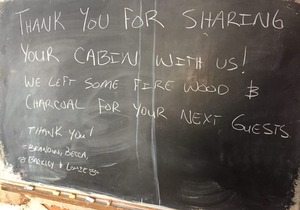 THANK YOU FOR SHARING
YOUR CABIN WITH US!
WE LEFT SOME FIRE WOOD &
CHARCOAL FOR YOUR NEXT GUESTS
THANK YOU!
BRANDON, BECCA,